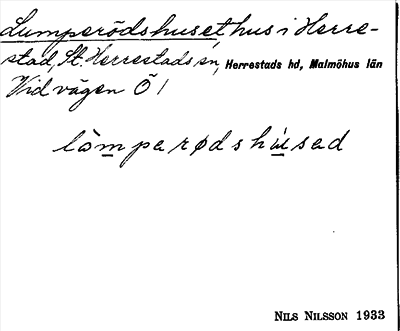 Lumparödshuset hus i Herre-
stad, St. Herrestads sn, Herrestads hd, Malmöhus län
Vid vägen Ö 1
lòmparødshùsad
NILS NILSSON 1933